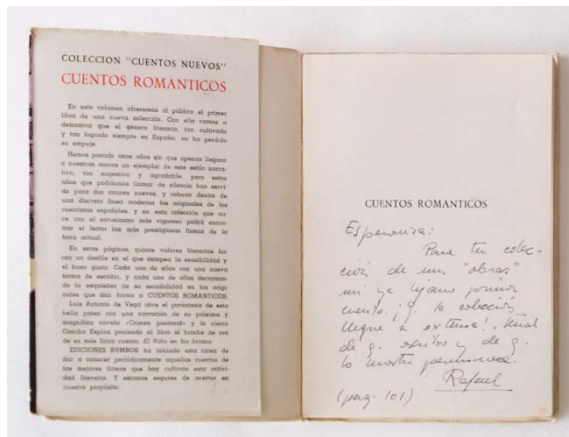 COLECCION "CUENTOS NUEVOS"
CUENTOS ROMANTICOS
En este volumen ofrecemos al público el primer
libro de una nueva colección. Con ella vamos a
demostrar que el género literario, tan cultivado
y tan logrado siempre en España, no ha perdido
su empuje.
Hemos pasado unos años sin que apenas llegara
a nuestras manos un ejemplar de este estilo narra-
tivo, tan sugestivo y agradable, pero estos
años que podríamos llamar de silencio han servi-
do para dar cauces nuevos, y colocar dentro de
una discreta línea moderna los originales de los
cuentistas españoles, y en esta colección que na-
ce con el entusiasmo más vigoroso podrá encon-
trar el lector las más prestigiosas firmas de la
hora actual.
En estas páginas, quince valores literarios ha-
cen un desfile en el que campea la sensibilidad y
el buen gusto. Cada uno de ellos con una nueva
forma de escribir, y cada uno de ellos derraman-
do la exquisitez de su sensibilidad en los origi-
nales que dan forma a CUENTOS ROMANTICOS.
Luis Antonio de Vega abre el paréntesis de esta
bella prosa con una narración de su pulsima y
magnífica novela «Crimen pasional» y lo cierra
Concha Espina poniendo al libro el broche de oro
de su más lírico cuento, El Niño en los brazos.
EDICIONES RVMBOS ha iniciado esta tarea de
dar a conocer periódicamente aquellos cuentos de
las mejores firmas que hoy cultivan esta activi-
dad literaria. Y estamos seguros de acertar en
nuestro propósito.
CUENTOS ROMANTICOS
Esperanza:
Para tu colec-
ción de mis "obras"
mi ya lejano primer
cuento. ¡Q. la colección
llegue a extensa!, señal
de q. exitos y de q.
lo nuestro permanece.
Rafael
(pag. 101)